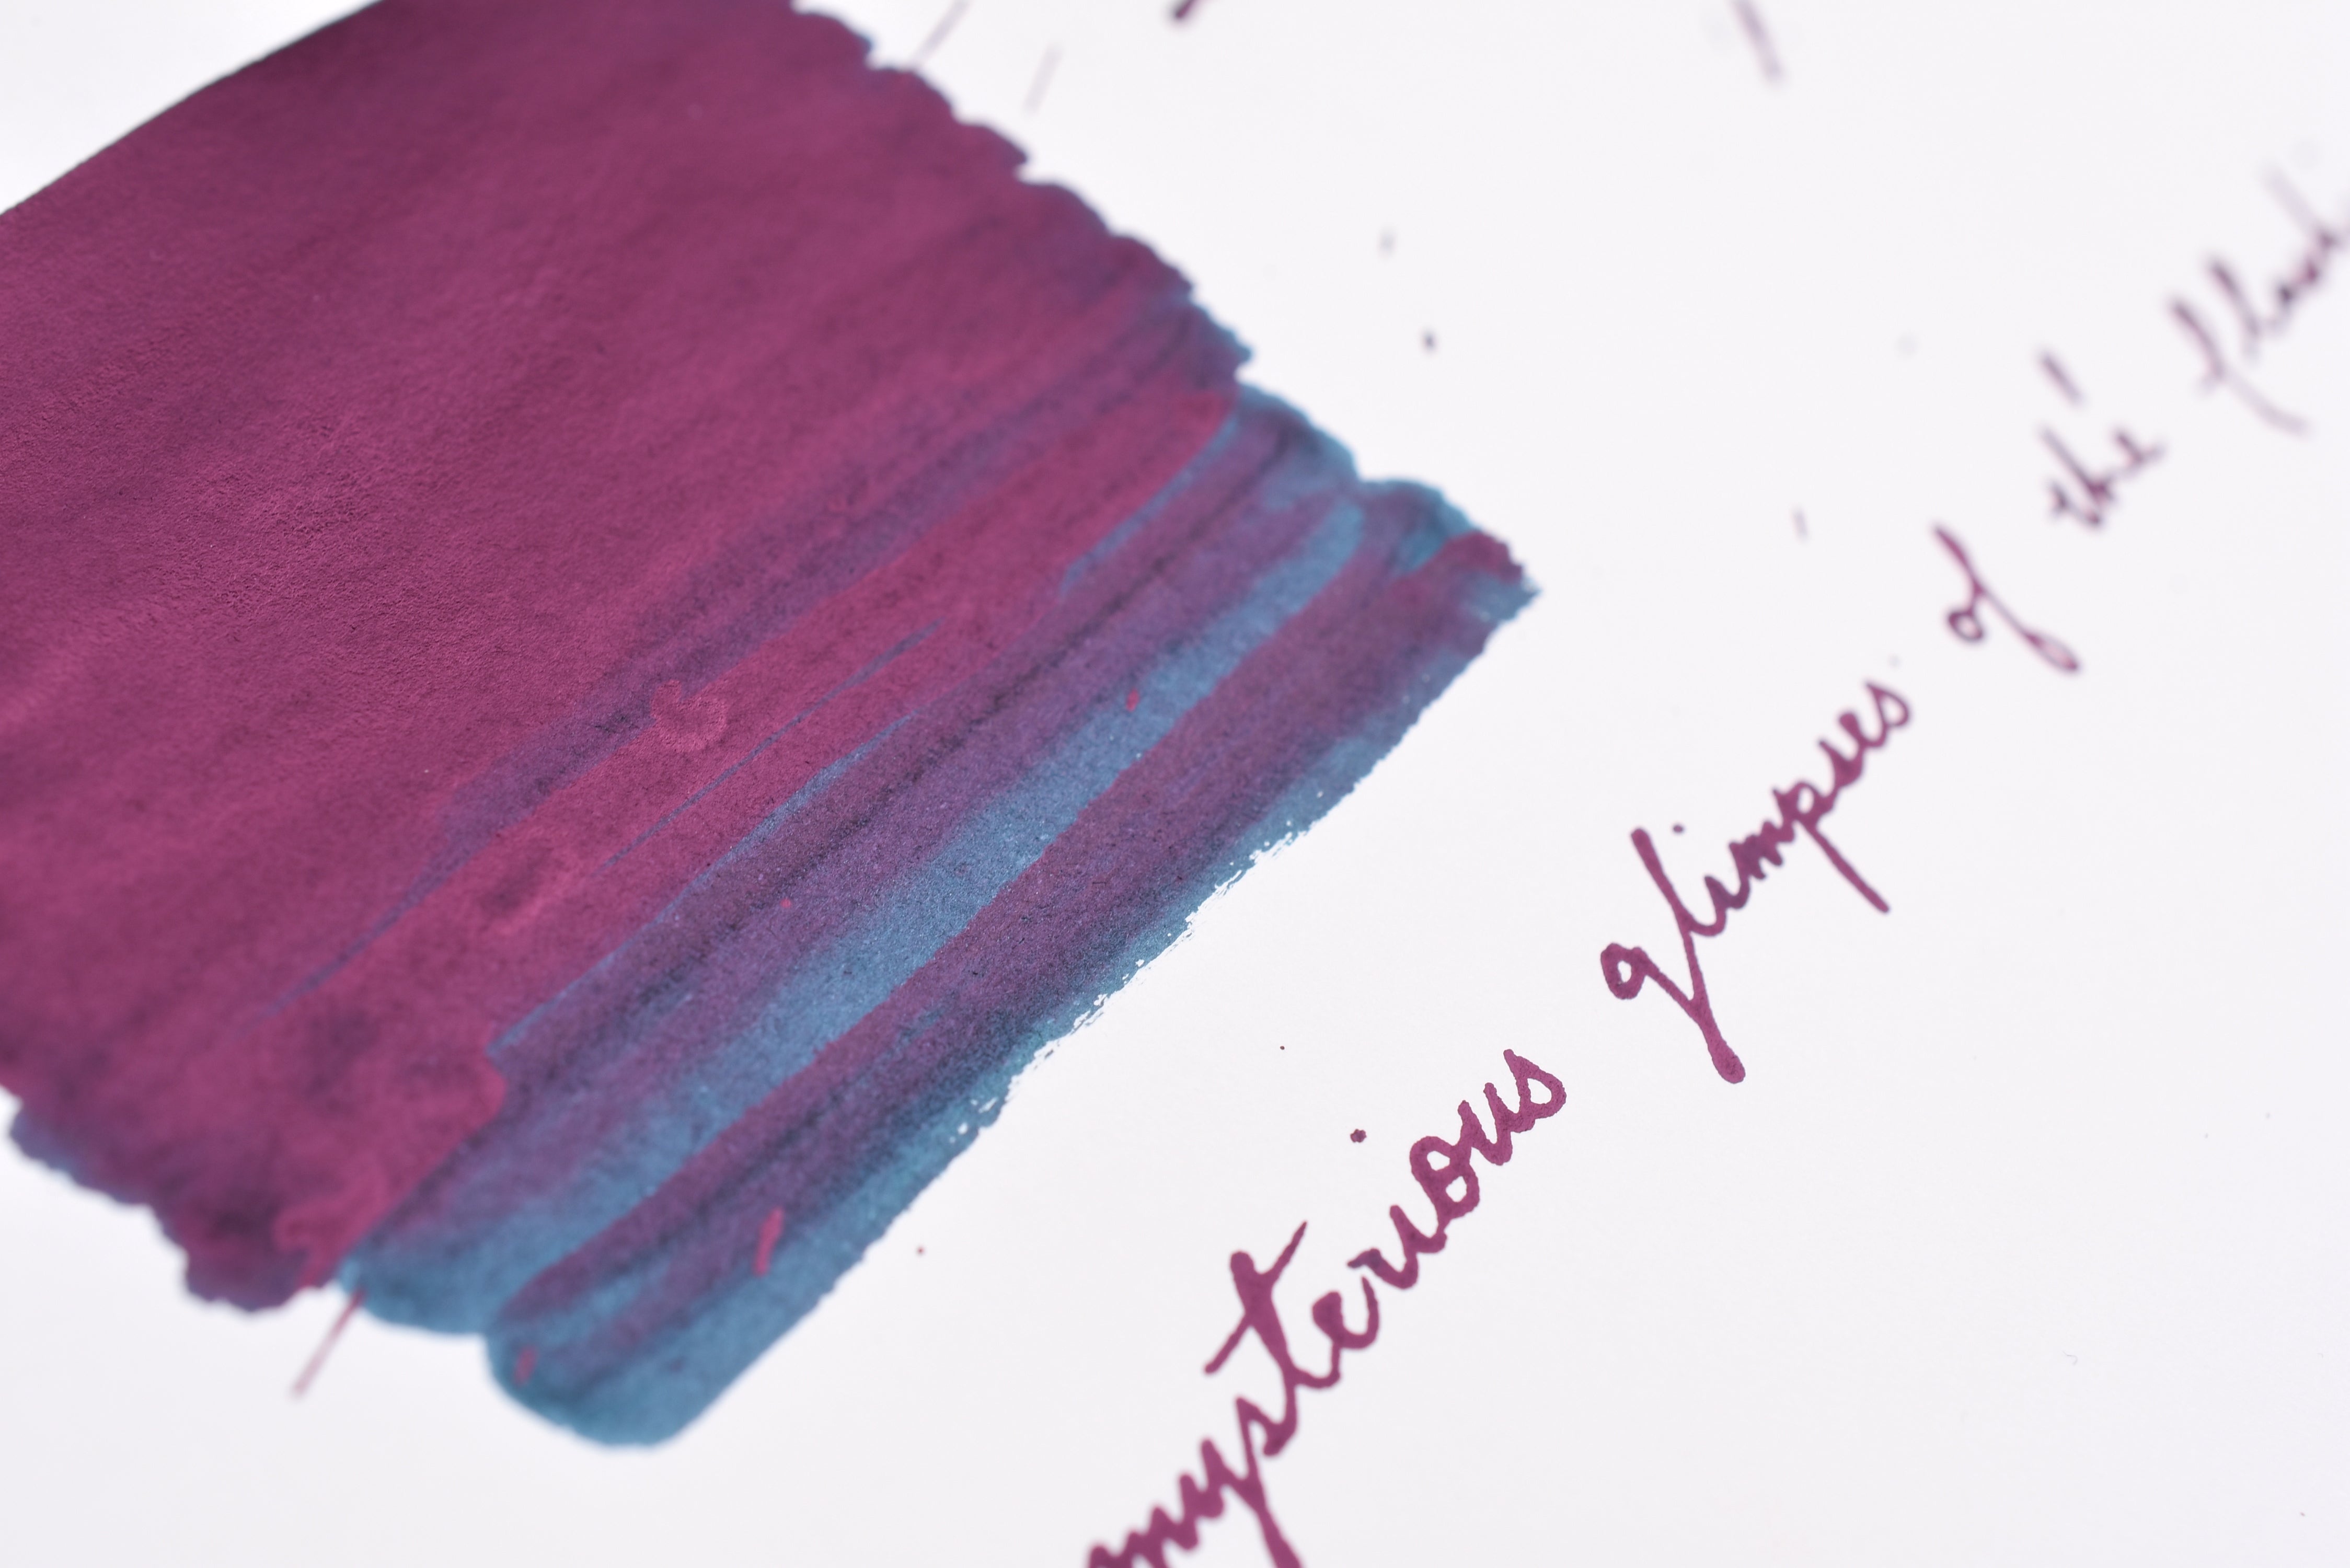 mysterious glimpses of the